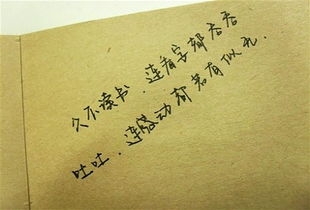 久不读书，连看字都吞吞
吐吐，连感动都若有似无.